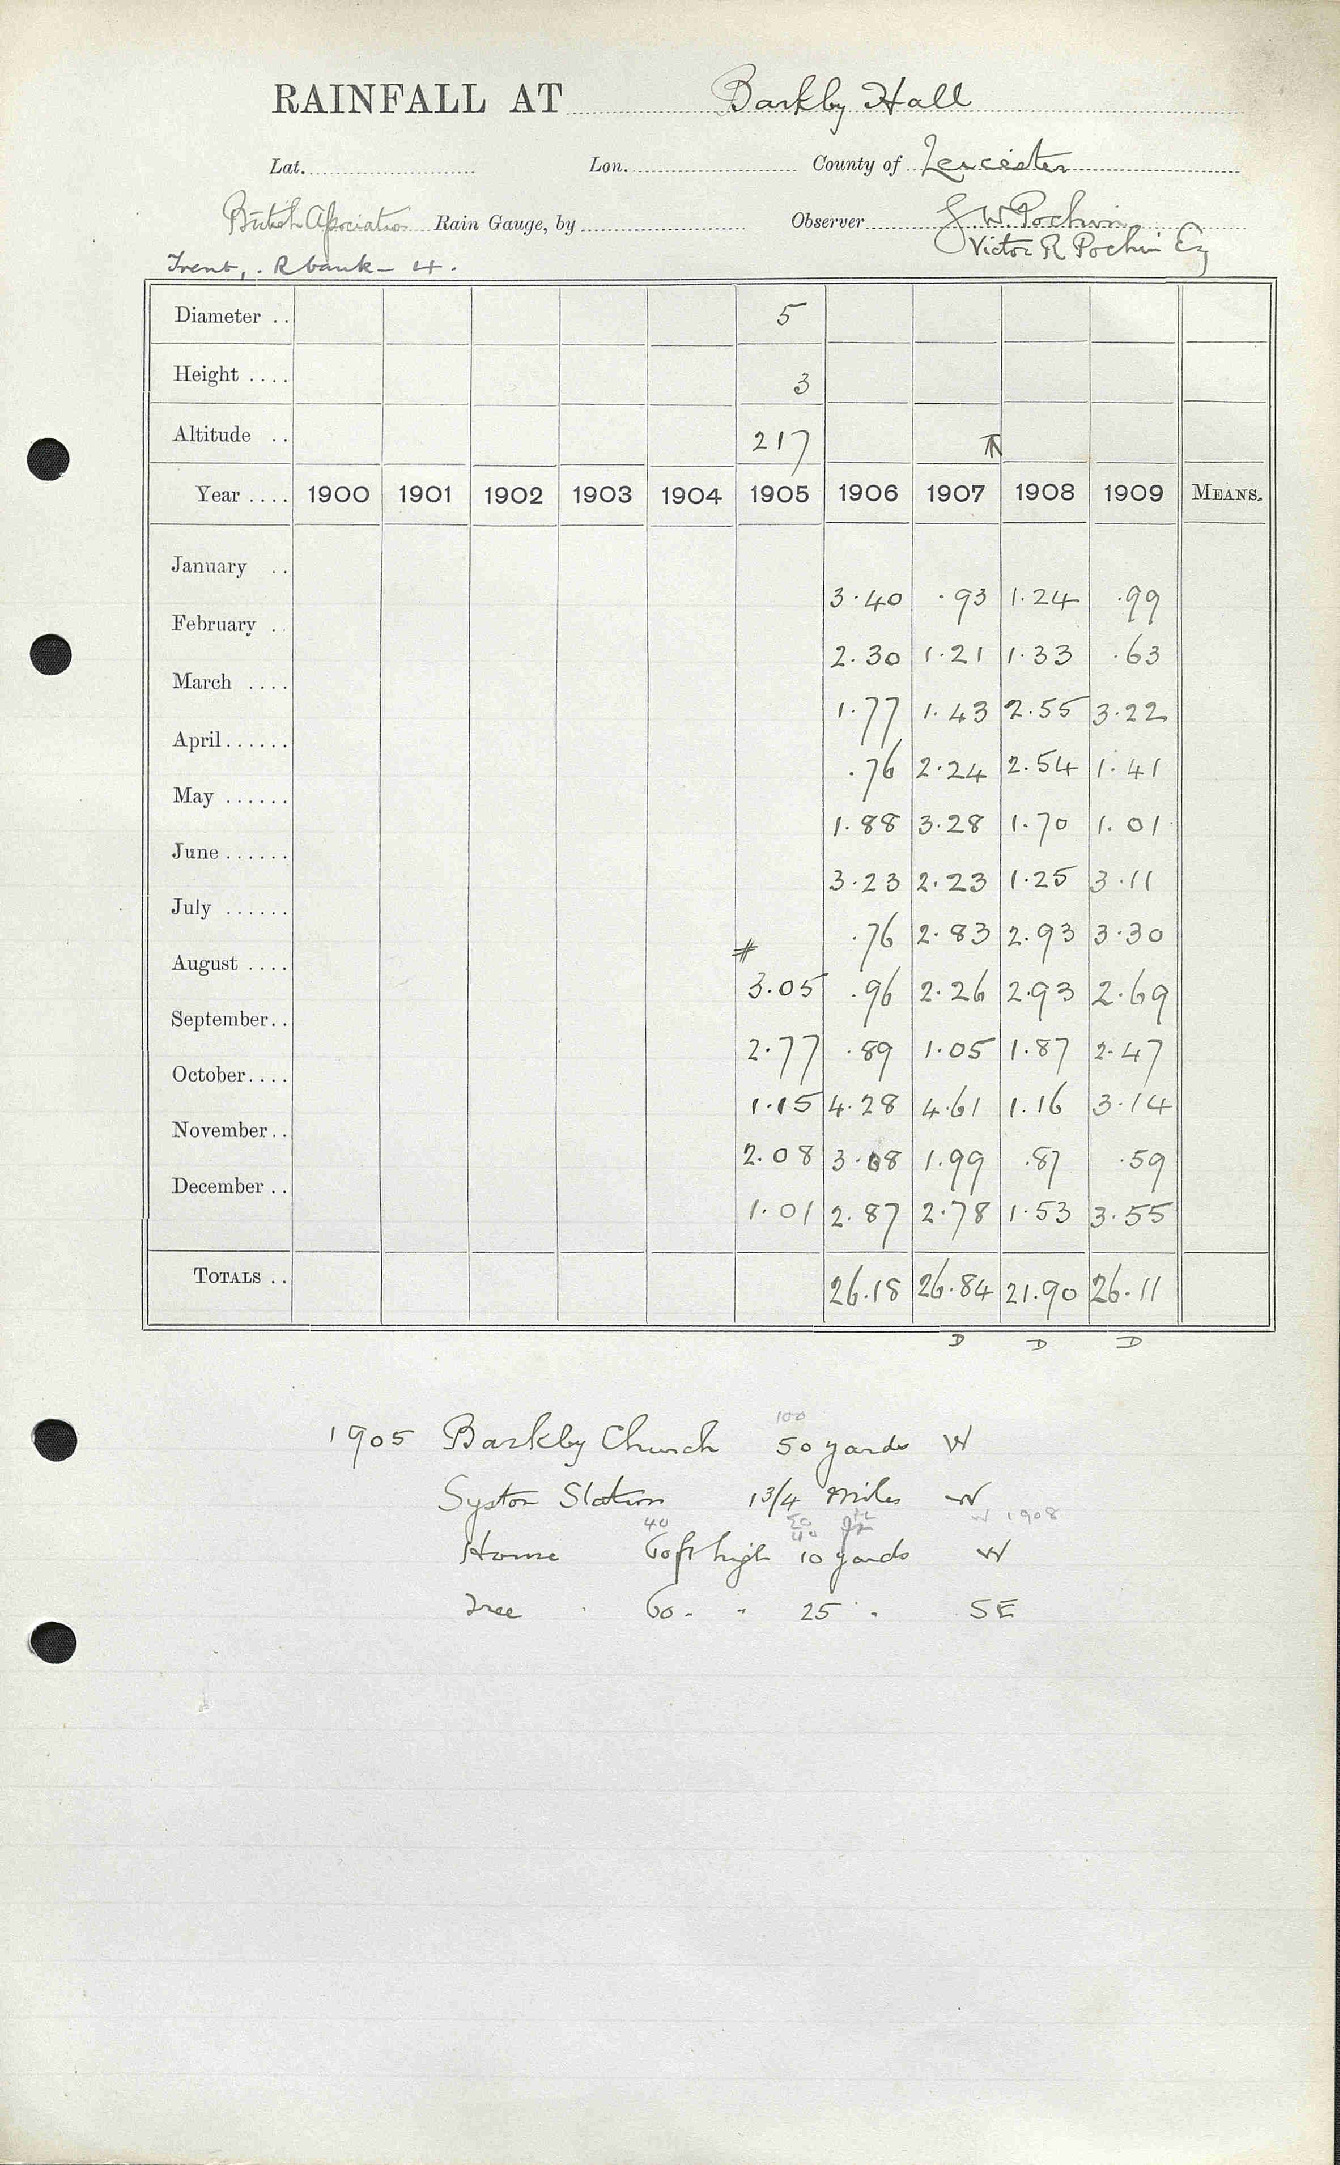 RAINFALL AT Barkby Hall
Lat. Lon. County of Leicester
British Association Rain Gauge, by Observer J W Pochin
Victor R Pochin Esq
Trent, R bank - 4.
Diameter .. 5
Height .... 3
Altitude .. 217
Year .... 1900 1901 1902 1903 1904 1905 1906 1907 1908 1909 MEANS.
January .. 3.40 .93 1.24 .99
February .. 2.30 1.21 1.33 .63
March .... 1.77 1.43 2.55 3.22
April ...... .76 2.24 2.54 1.41
May ...... 1.88 3.28 1.70 1.01
June ...... 3.23 2.23 1.25 3.11
July ...... .76 2.83 2.93 3.30
August .... 3.05 .96 2.26 2.93 2.69
September .. 2.77 .89 1.05 1.87 2.47
October .... 1.15 4.28 4.61 1.16 3.14
November .. 2.08 3.08 1.99 .87 .59
December .. 1.01 2.87 2.78 1.53 3.55
TOTALS .. 26.18 26.84 21.90 26.11
D D D
100
1905 Barkby Church 50 yards W
Syston Station 1 3/4 Miles W
40 50 40 W 1908
House 60 ft high 10 yards W
Tree " 60 " " 25 " SE